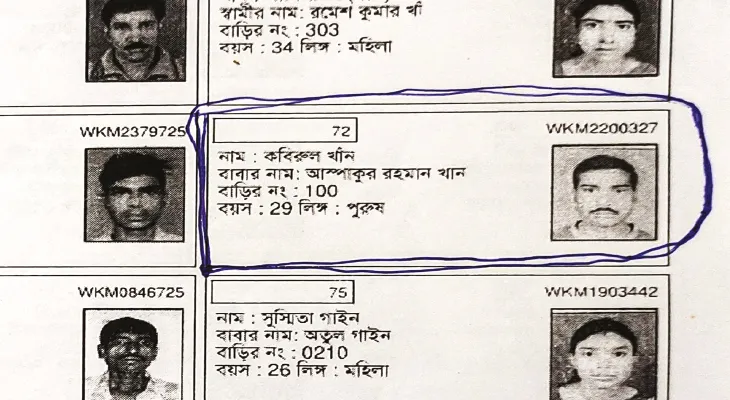 স্বামীর নাম: রমেশ কুমার খাঁ
বাড়ির নং : 303
বয়স : 34 লিঙ্গ : মহিলা
WKM2379725
72
WKM2200327
নাম : কবিরুল খাঁন
বাবার নাম: আস্পাকুর রহমান খান
বাড়ির নং : 100
বয়স : 29 লিঙ্গ : পুরুষ
WKM0846725
75
WKM1903442
নাম : সুস্মিতা গাইন
বাবার নাম: অতুল গাইন
বাড়ির নং : 0210
বয়স : 26 লিঙ্গ : মহিলা